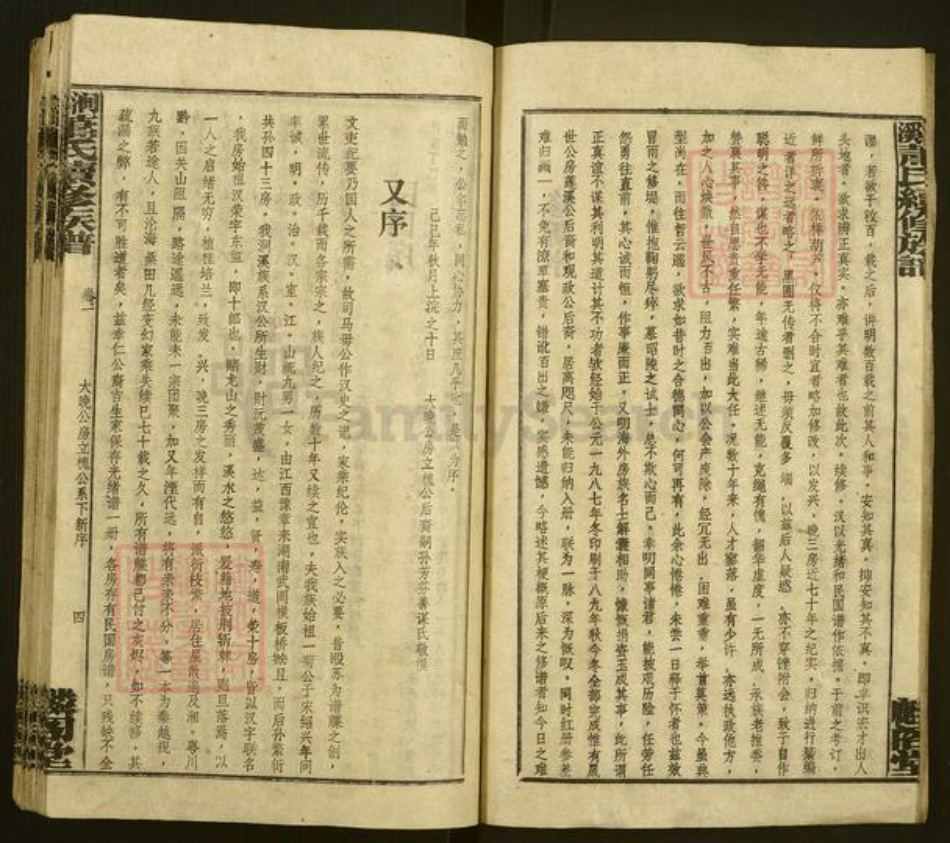 溪萧氏续修族谱
灏，若欲于枚百，载之后，讲明数百载之前其人和事，安知其真，抑安知其不真，即卓识宏才出人
头地者，欲求辨正真实，亦难乎其难者也故此次，续修，汉以光绪和民国谱作依据，于前之考订，
鲜所折衷，依样葫芦，仅将不合时宜者略加修改，以发兴，晚三房近七十年之纪实，归纳进行纂编
近者详之远者略之，黑圈无传者删之，毋须反覆多端，以兹后人疑惑，亦不穿锉附会，致于自作
聪明之咎，谋也不学无能，年逾古稀，继述无能，克绳有愧，韶华虚度，一无所成，承族老推委，
赞襄其事，然自思责重任繁，实难当此大任，况数十年来，人才寥落，虽有少许，亦远执政他方，
加之人心涣散，世风不古，阻力百出，加以公会产废除，经冗无出，困难重重，举首莫策，今虽典
型尚在，而往哲云遥，欲求如昔时之合德同心，何可再有，此余心惓惓，未尝一日释于怀者也兹效
冒雨之修堤，惟抱鞠躬尽瘁，墓昭陵之试士，总不欺心而己，幸明同事诸君，能披艰历险，任劳任
怨勇往直前，其心诚而恒，作事廉而正，又明海外房族名士解囊相助，慷慨捐资玉成其事，此所谓
正真谊不谋其利明其道计其不功者欤经始于公元一九八七年冬印刷于八九年秋今冬全部完成惟有凤
世公房莲溪公后裔和观政公后裔，居高咫尺，未能归纳入册，联为一脉，深为慨叹，同时红册参差
难归画一，不免有潦草塞责，错讹百出之嫌，实感遗憾，今略述其梗概原后来之修谱者知今日之难
魁阁堂
而勉之，公尔忘私，同心协力，其庶几乎也，是以为序，
己巳年秋月上浣之十日　大晚公房立槐公后裔嗣孙芳芬善谋氏敬撰
又序
文史纪要乃国人之所需，故司马毋公作汉史之記，家乘纪伦，实族人之必要，昔殴苏为谱牒之创，
累世流传，历千载而各宗宗之，族人纪之，历数十年又续之宜也，夫我族始祖一菊公于宋绍兴年间
率诚，明，政，治，汉，室，江，山概九男一女，由江西豫章来湖南武岡横板桥映旦，而后孙繁衍
共孙四十三房，我涧溪族系汉公所生财，财沅茂盛，达，益，贤，寿，道，荣十房，皆以汉字联名
，我房始祖汉荣字东监，即十郎也，睹龙山之秀丽，溪水之悠悠，爰籍地披荆斩棘，则旦落焉，以
一人之启绪无穷，植桂培兰，致发，兴，晚三房之发样而有自，派衍枝繁，居住星散遍及湘，粤川
黔，因关山阻隔，路途遥远，未能未一宗团聚，加又年湮代远，将有亲亲不分，等一本为秦越视，
九族若途人，且沧海桑田几经变幻家乘失续巳七十载之久，所有谱牒都己付之灰烬，如不续修，其
疏漏之弊，有不可胜道者矣，兹幸仁公裔吉生家保存光绪谱一册，各房存有民国房谱，只残缺不全
涧萧氏续修族谱
卷一
大晚公房立槐公系下新序
四